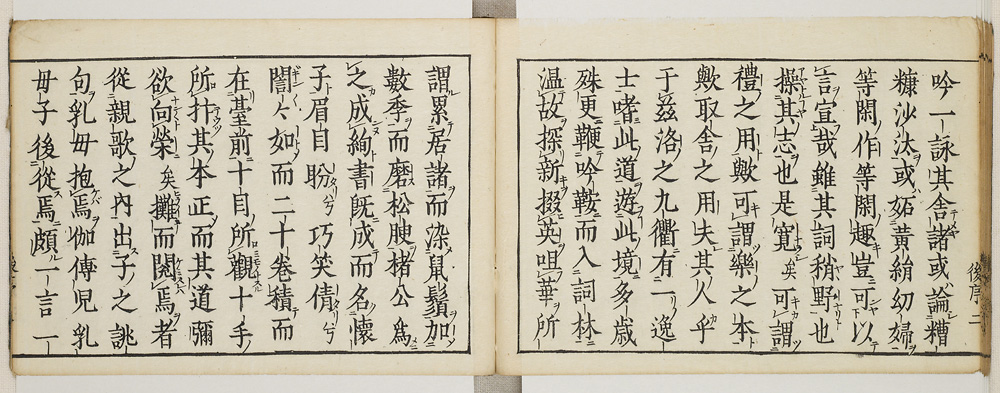 吟一詠其舍諸或論糟
糠沙汰或妬黃絹幼婦
等閑作等閑趣豈可以
言宣哉雖其詞稍野也
操其志也是寬矣可謂
禮之用歟可謂樂之本
歟取舍之用夫其人乎
于茲洛之九衢有二逸
士嗜此道遊此境多歲
殊更鞭吟鞍而入詞林
温故探新掇英咀華所
後序二
謂累居諸而染鼠鬚加
數季而磨松腴楮公爲
之成絢書既成而名懷
子眉目盼巧笑倩
誾々如而二十卷積而
在臺前十目所觀十手
所抃其本正而其道彌
欲向榮矣攤而閱焉者
從親歌之內出子之誂
句乳母抱焉伽傳兒乳
母子後從焉頗一言一